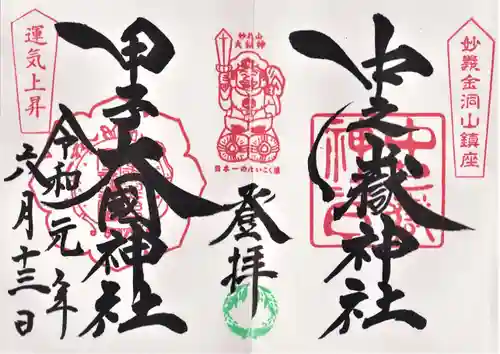 妙義金洞山鎮座
中之嶽神社
登拝
妙義山
大国神
日本一のだいこく様
運気上昇
甲子大國神社
令和元年
六月十三日